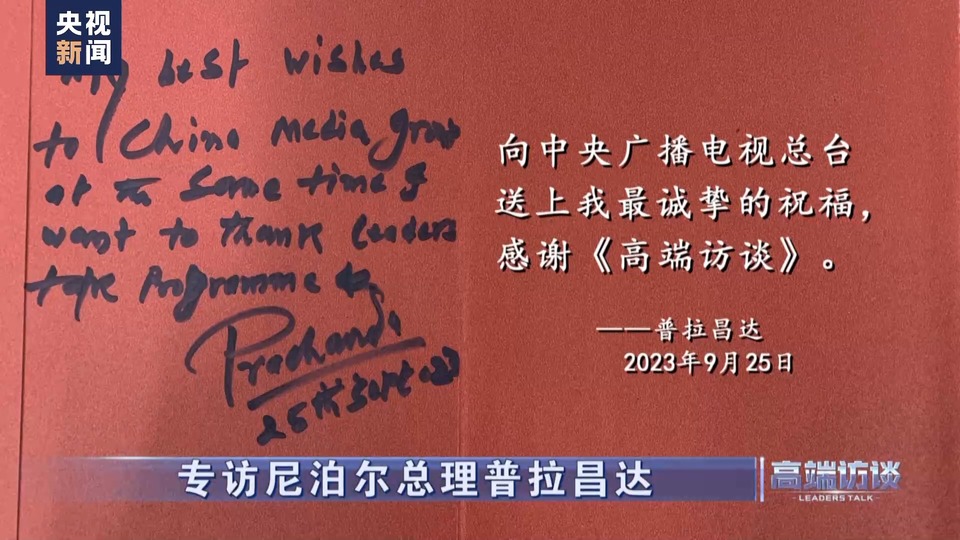 央视
新闻
My best wishes
to China Media Group
at the same time I
want to thank Leaders
talk Programme
Prachanda
25th Sept
向中央广播电视总台
送上我最诚挚的祝福，
感谢《高端访谈》。
——普拉昌达
2023年9月25日
专访尼泊尔总理普拉昌达
高端访谈
LEADERS TALK